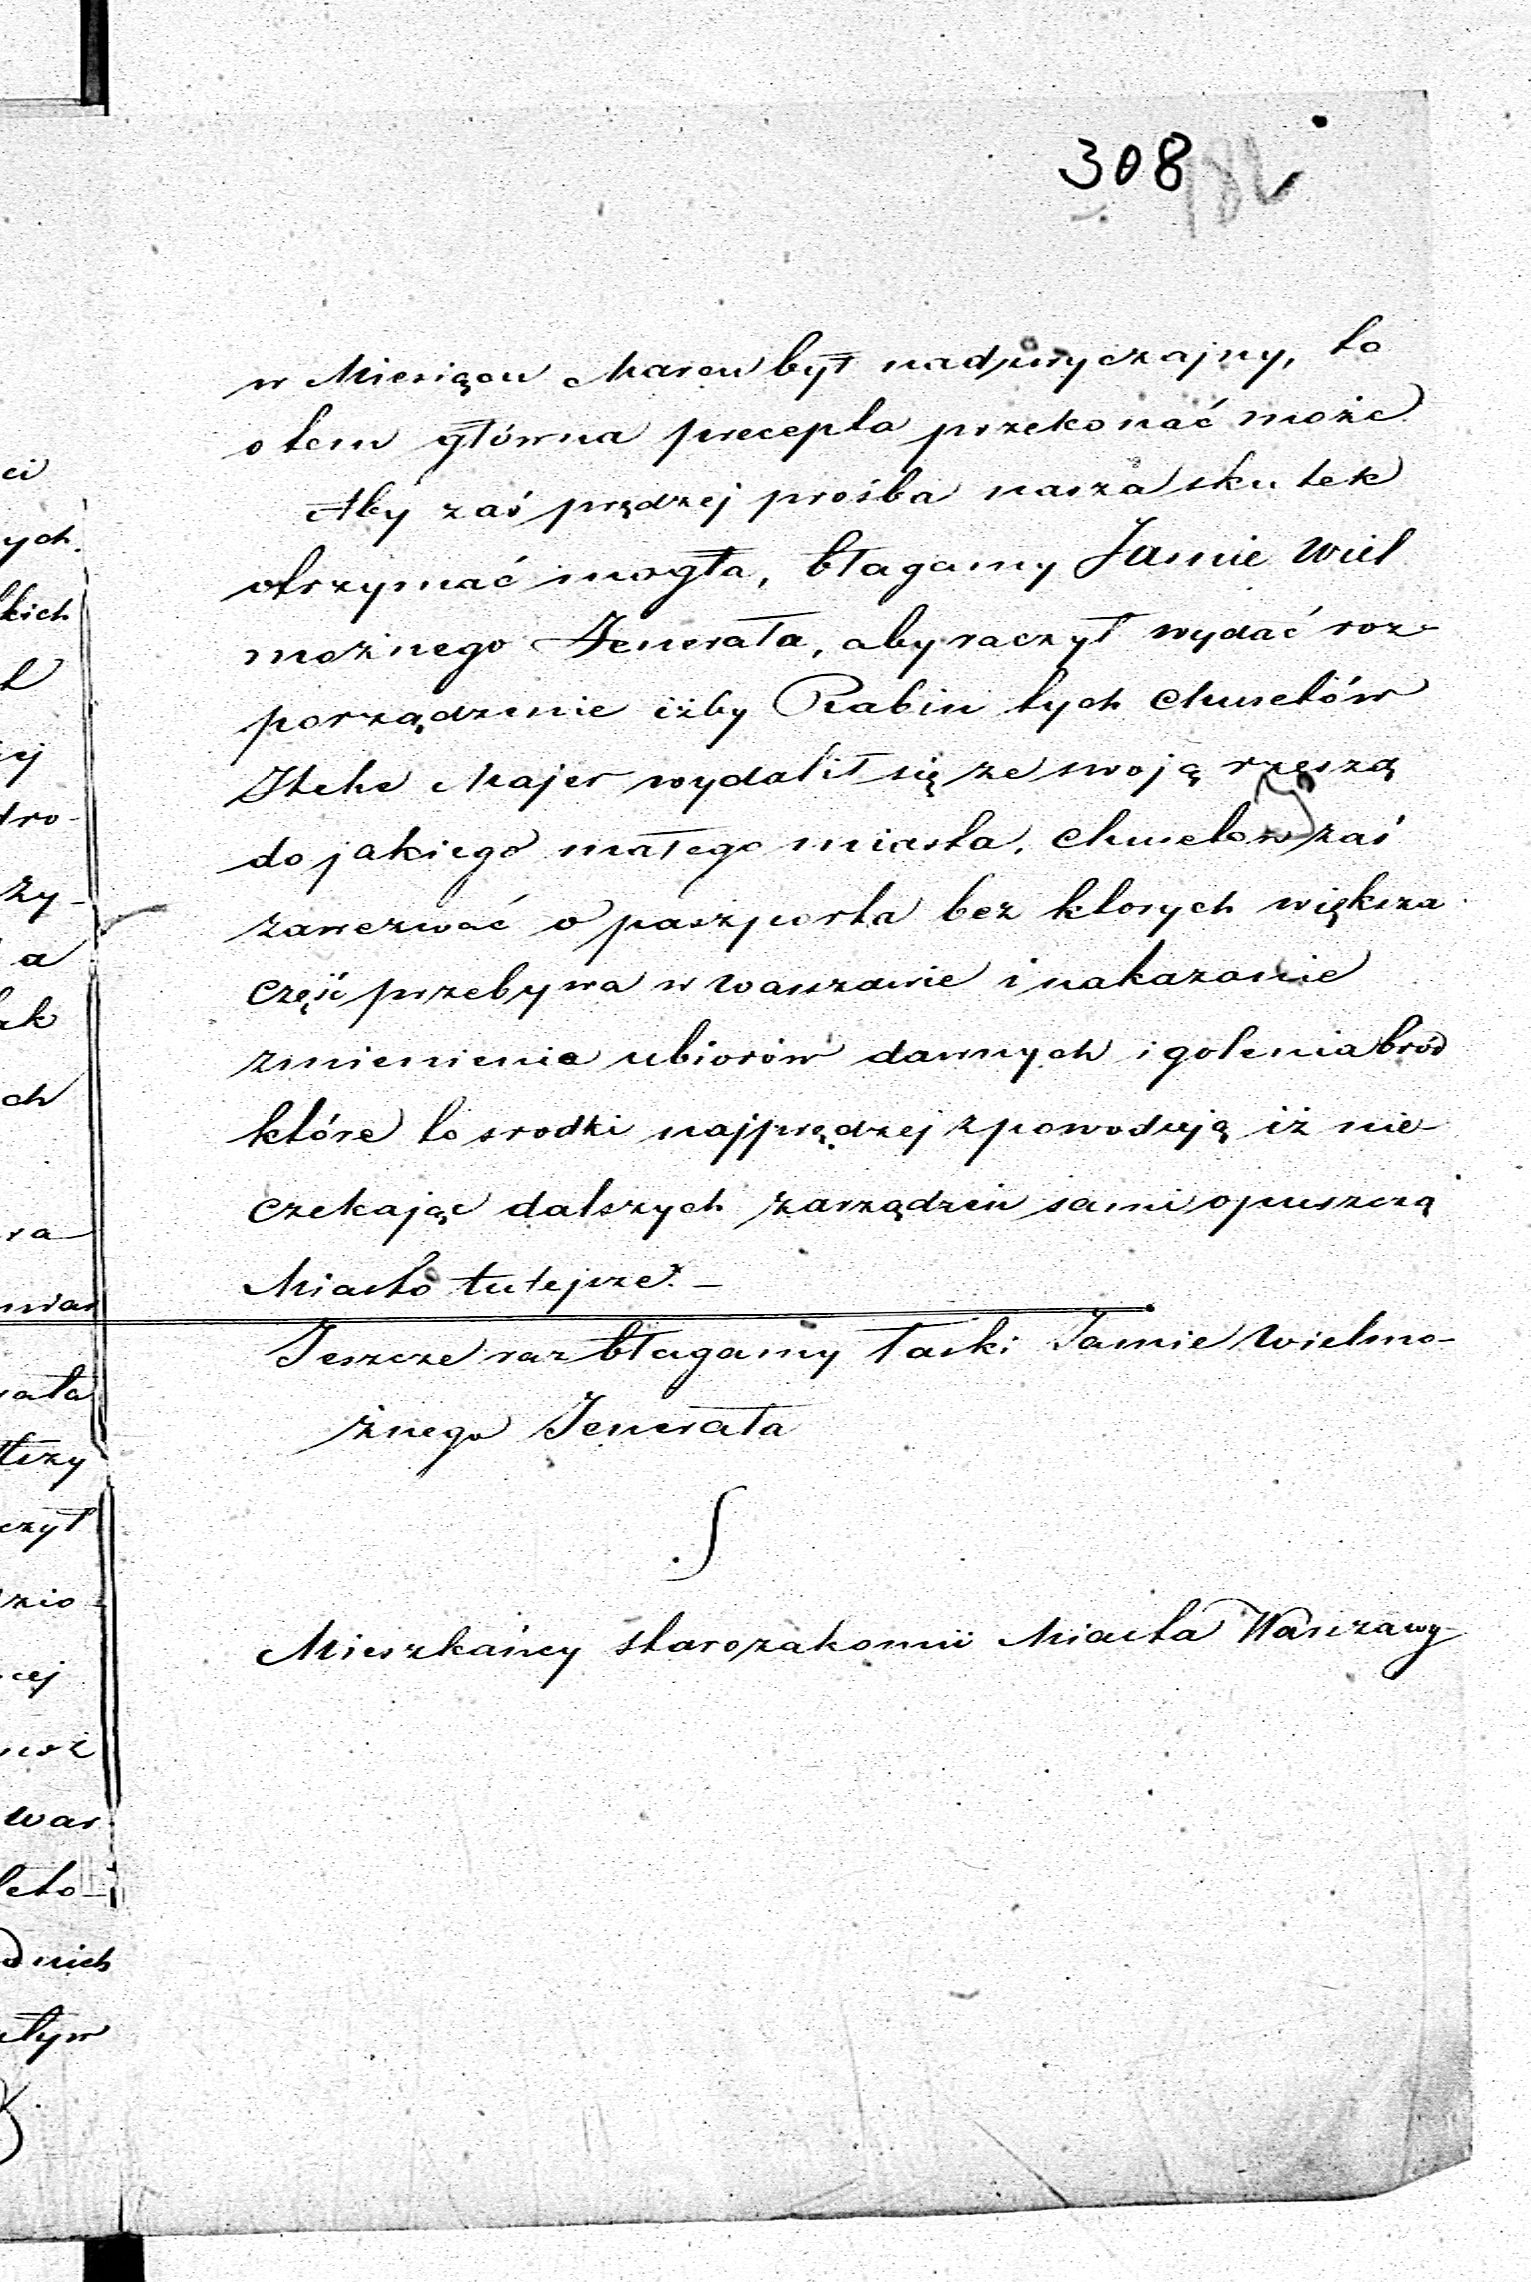 308
w Miesiącu Marcu był nadzwyczajny, to
o tem główna precepta przekonać może
Aby zaś prędzej prośba nasza skutek
otrzymać mogła, błagamy Jaśnie Wiel
możnego Jenerała, aby raczył wydać roz-
porządzenie iżby Rabin tych Chusetów
Itche Majer wydalił się ze swoją rzeszą
do jakiego małego miasta, Chusetów zaś
zawezwać o paszporta bez ktorych większa
część przebywa w Warszawie i nakazanie
zmienienia ubiorów dawnych i golenia bród
które to srodki najprędzej zpowodują iż nie
czekając dalszych zarządzeń sami opuszczą
Miasto tutejsze. —
Jeszcze raz błagamy łaski Jaśnie Wielmo-
żnego Jenerała
Mieszkańcy starozakonni Miasta Warszawy
ci
ych.
kich
ej
dro-
ży-
a
ak
ch
ra
rała
czył
zio-
cej
war
leto-
d nich